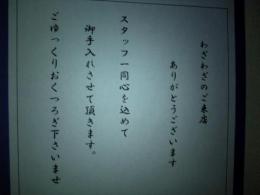 わざわざのご来店
ありがとうございます
スタッフ一同心を込めて
御手入れさせて頂きます。
ごゆっくりおくつろぎ下さいませ